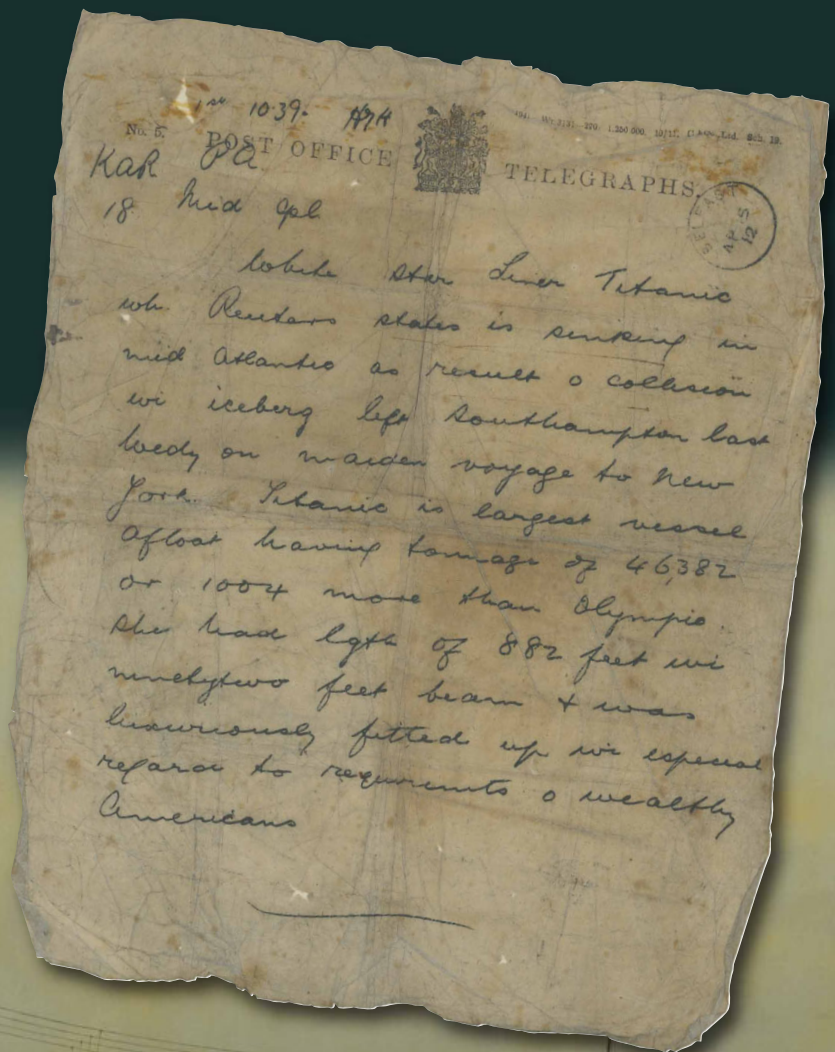 1st 10.39.
No. 5. POST OFFICE TELEGRAPHS.
KaR Pa
18 Mid Gpl
BELFAST
AP 15
12
White Star Liner Titanic
wh. Reuters states is sinking in
mid Atlantic as result o collision
wi iceberg left Southampton last
wedy on maiden voyage to New
York. Titanic is largest vessel
afloat having tonnage of 46,382
or 1004 more than Olympic.
She had lgth of 882 feet wi
ninetytwo feet beam & was
luxuriously fitted up wi especial
regard to requirmnts o wealthy
Americans